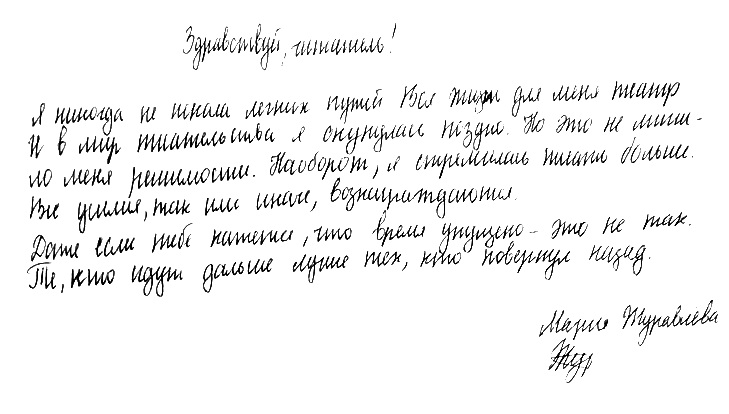 Здравствуй, читатель!
Я никогда не искала легких путей Вся жизнь для меня театр
И в мир писательства я окунулась поздно. Но это не лиши-
ло меня решимости. Наоборот, я стремилась писать больше.
Все усилия, так или иначе, вознаграждаются.
Даже если тебе кажется, что время упущено - это не так.
Те, кто идут дальше лучше тех, кто повернул назад.
Мария Журавлева
Жур